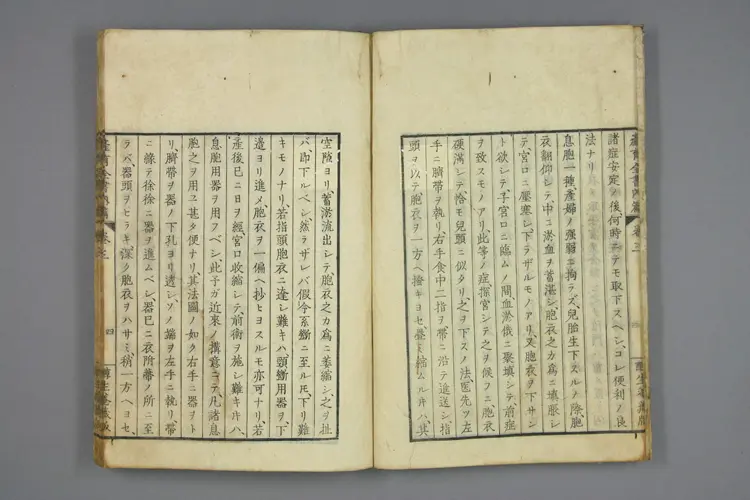 諸症安定ノ後、何時ニテモ取下スベシ、コレ便利ノ良
法ナリ
息胞一種、産婦ノ強弱ニ拘ラズ、兒胎生下スルノ際、胞
衣翻仰シテ、中ニ淤血ヲ蓄滿シ、胞衣之カ為ニ壙脹シ
テ、宮口ニ壓塞シ、下ラザルモノアリ、又胞衣ヲ下サン
ト欲シテ、子宮口ニ臨ムノ間、血淤俄ニ聚填シテ、前症
ヲ致スモノアリ、此等ノ症、探宮シテ之ヲ候フニ、胞衣
硬滿シテ、恰モ兒頭ニ似タリ、之ヲ下スノ法、醫先ツ左
手ニ臍帶ヲ執リ、右手食中二指ヲ帶ニ沿テ進送シ、指
頭ヲ以テ胞衣ヲ一方ヘ捨キヨセ、壘ミ縮ムルキハ、其
空隙ヨリ蓄淤流出シテ、胞衣之カ為ニ萎縮シ、之ヲ扯
バ、即下ルベシ、然ラザレバ假令系斷ニ至ルトモ、下リ難
キモノナリ、若指頭胞衣ニ達シ難キハ、頭斷用器ヲ、下
邊ヨリ進メ、胞衣ヲ一偏ヘ抄ヒヨスルモ亦可ナリ、若
産後已ニ日ヲ經、宮口收縮シテ、前術ヲ施シ難キ片ハ、
息胞用器ヲ用フベシ、此子ガ近來ノ搆意ニテ、凡諸息
胞之ヲ用ユ甚タ便ナリ、其法圖ノ如ク右手ニ器ヲト
リ、臍帶ヲ器ノ下孔ヨリ透シ、ソノ端ヲ左手ニ執リ、帶
ニ縁テ徐徐ニ器ヲ進ムベシ、器已ニ衣附帶ノ所ニ至
ラバ、器頭ヲヒラキ、深ク胞衣ヲハサミ、稍一方ヘヨセ、
産育全書内篇 卷三
四